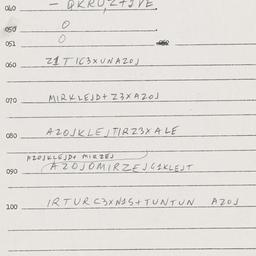 040 - QKRU,Z+JVE.
050 O
051 O
060 Z1TIC3XUNA20J
070 MIRKLEJD+Z3XA20J
080 A20JKLEJTIRZ3XALE
A20JKLEJD+ MIRZEJ
090 A20JOMIRZEJC1KLEJT
100 IRTURC3XN1S+TUNTUN A20J